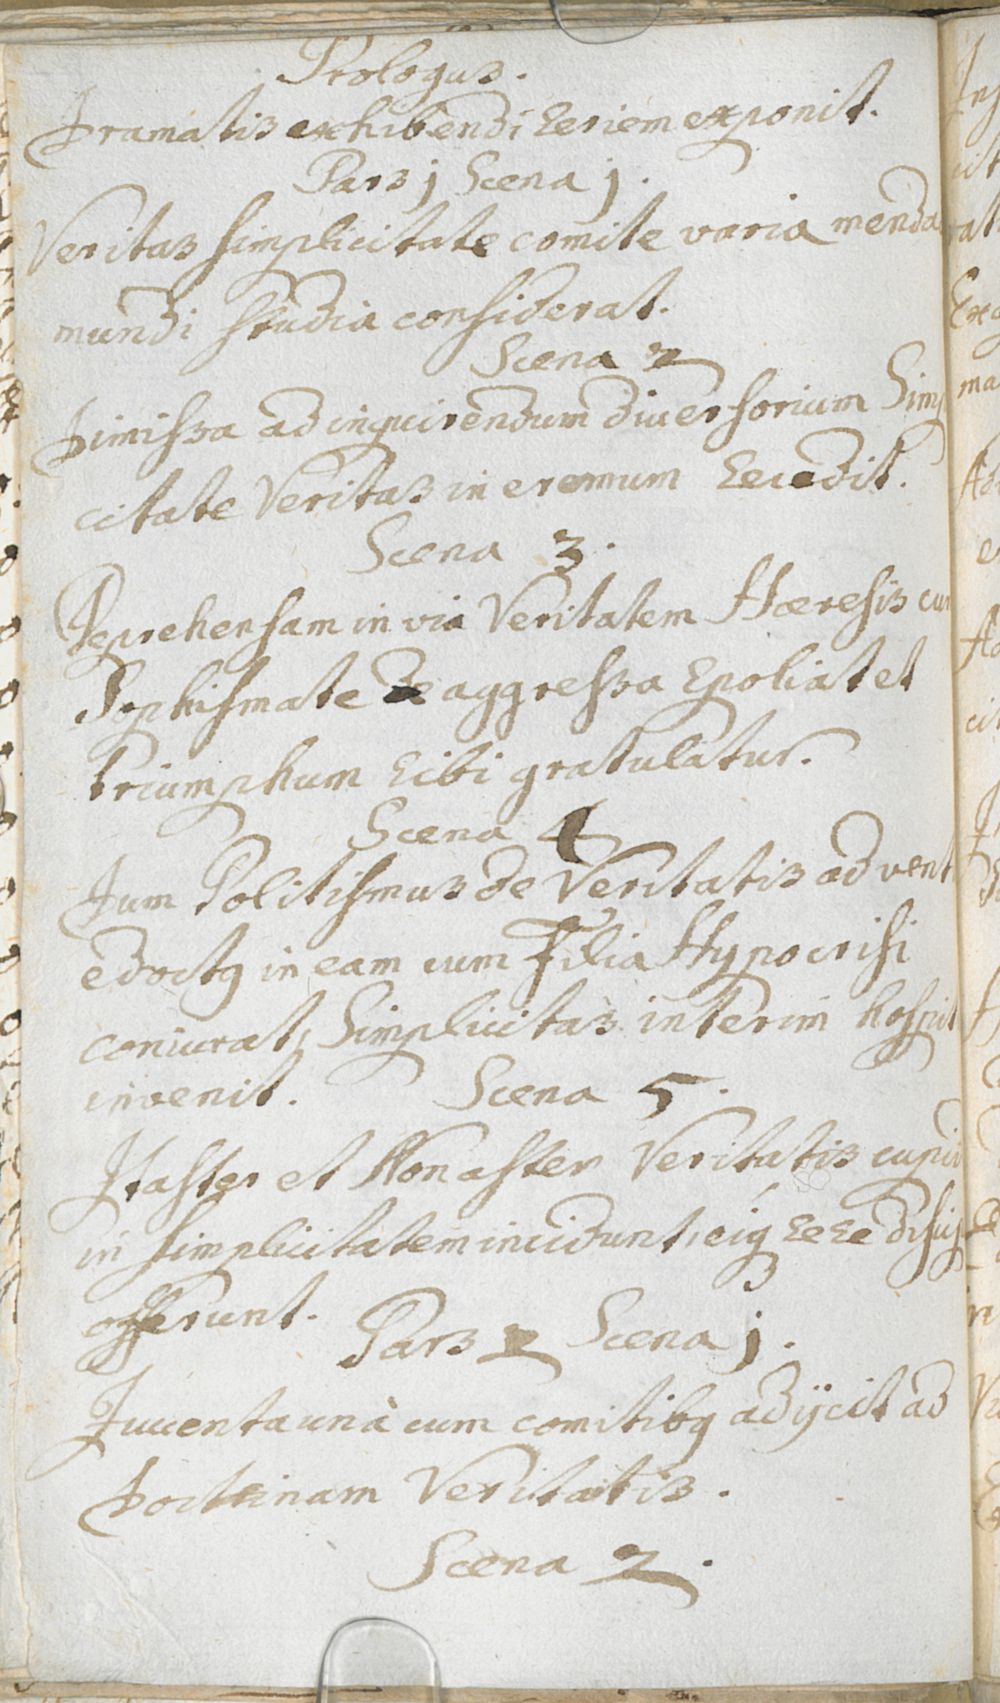 Prologus.
Dramatis exhibendi seriem exponit.
Pars j Scena j.
Veritas simplicitate comite varia menda
mundi studia considerat.
Scena 2
Dimissa ad inquirendum diversorium Simp
citate Veritas in eremum secedit.
Scena 3.
Deprehensam in via Veritatem Hæresis cum
Sophismate aggressa spoliat et
triumphum sibi gratulatur.
Scena 4
Dum Politismus de Veritatis advent
edoctꝯ in eam cum Filia Hypocrisi
coniurat, Simplicitas interim hospit
invenit. Scena 5.
Ptaster et Monaster Veritatis cupid
in simplicitatem incidunt, eiꝯ sese discip
offerunt.
Pars 2 Scena j.
Iuventa unà cum comitibꝯ adijcit ad
doctrinam Veritatis.
Scena 2.